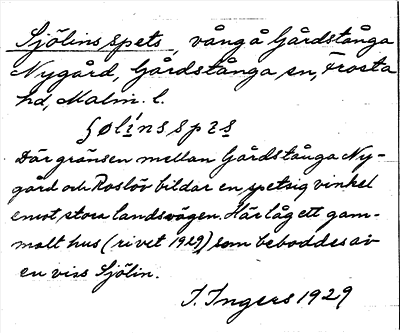 Sjölins spets, vång å Gårdstånga
Nygård, Gårdstånga sn, Frosta
hd, Malm. l.
ʃølínsspɛs
Där gränsen mellan Gårdstånga Ny-
gård och Roslöv bildar en spetsig vinkel
emot stora landsvägen. Här låg ett gam-
malt hus (rivet 1929), som beboddes av
en viss Sjölin.
I. Ingers 1929